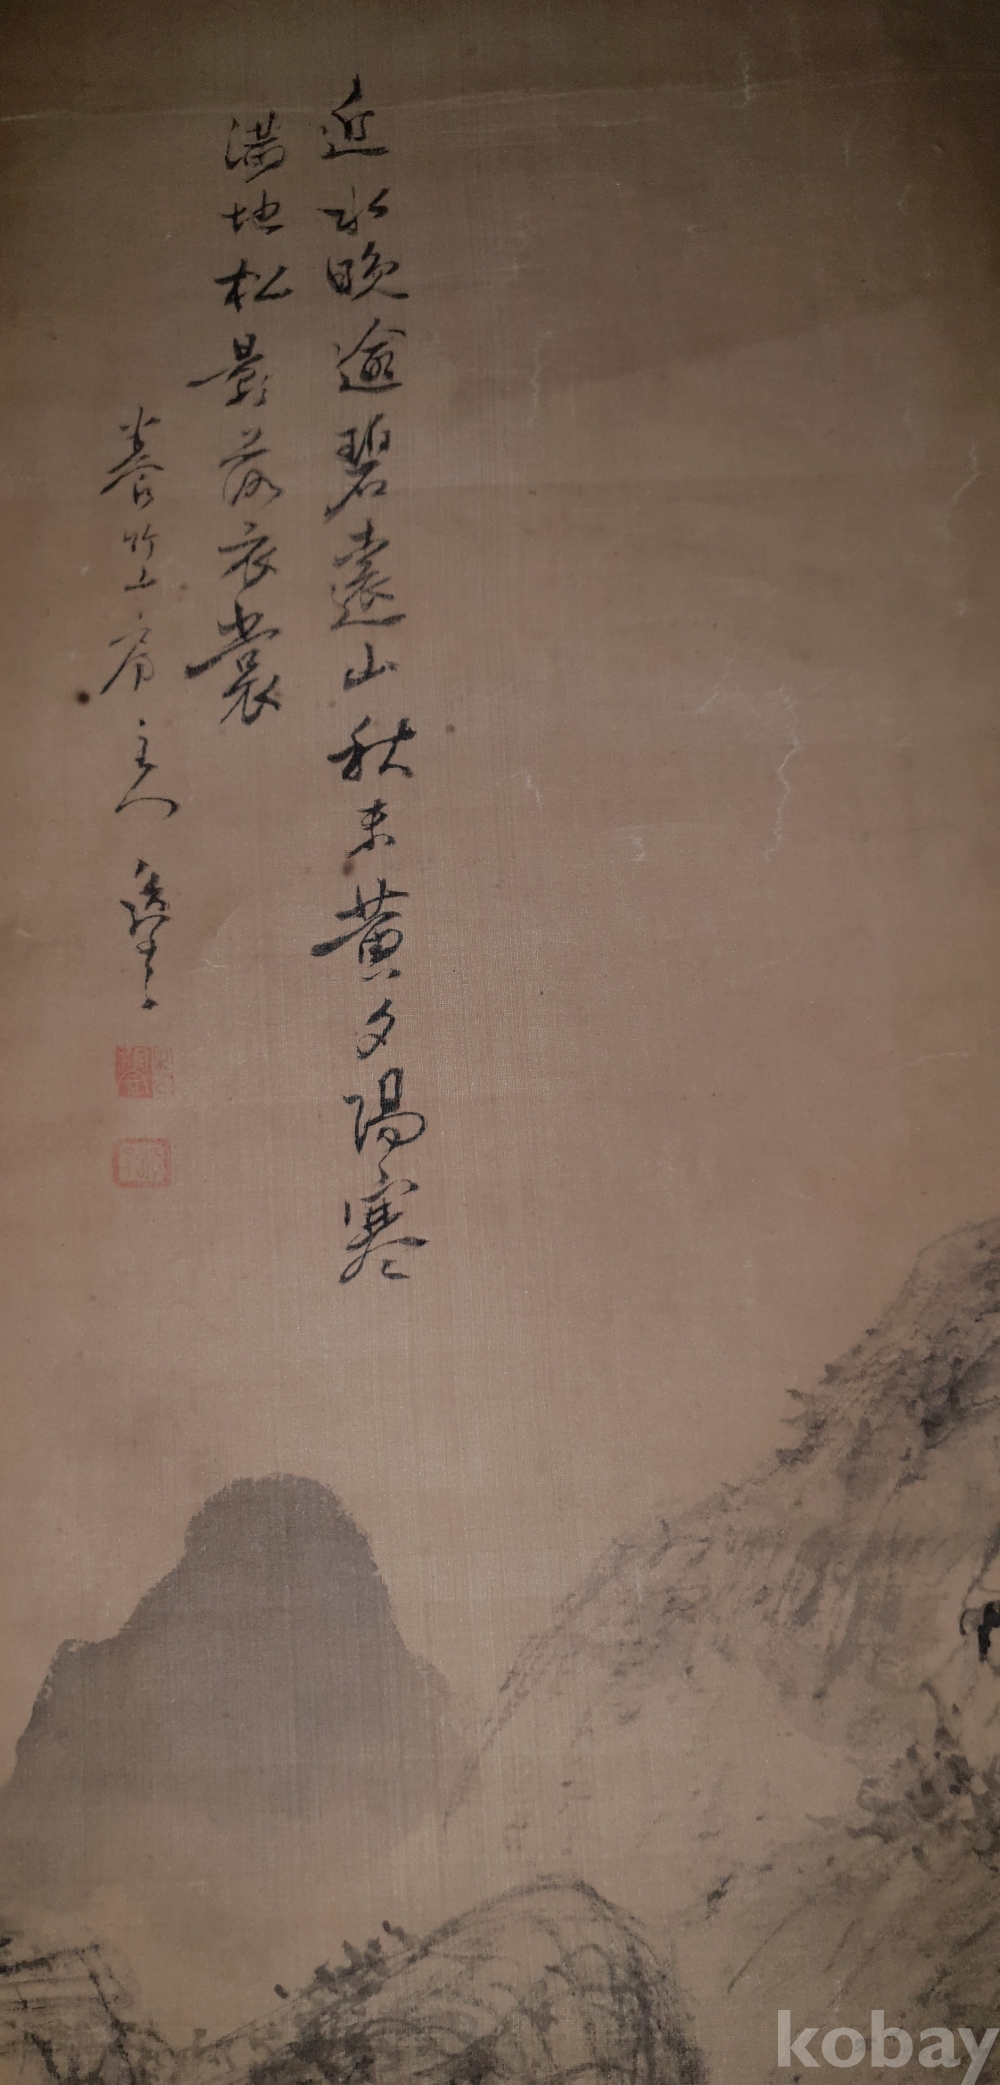 近水晩逾碧遠山秋未黄夕陽寒
満地松影落衣裳
養竹山房主人
kobay